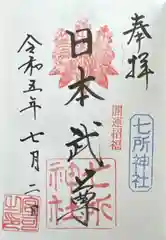 奉拝
開運招福
七所神社
日本武尊
七所神社
令和五年七月二